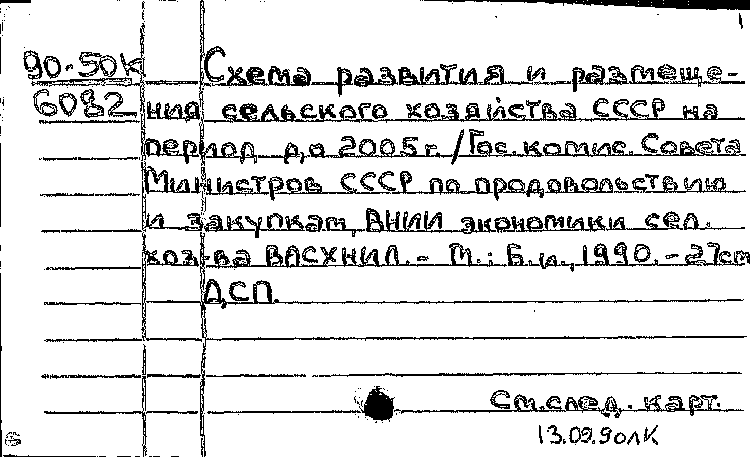 90-50к Схема развития и размеще-
6082 ния сельского хозяйства СССР на
период до 2005г. / Гос. комис. Совета
Министров СССР по продовольствию
и закупкам, ВНИИ экономики сел.
хоз-ва ВАСХНИЛ. - М.: Б.и., 1990. - 27см
ДСП.
См. след. карт.
13.09.90 ЛК